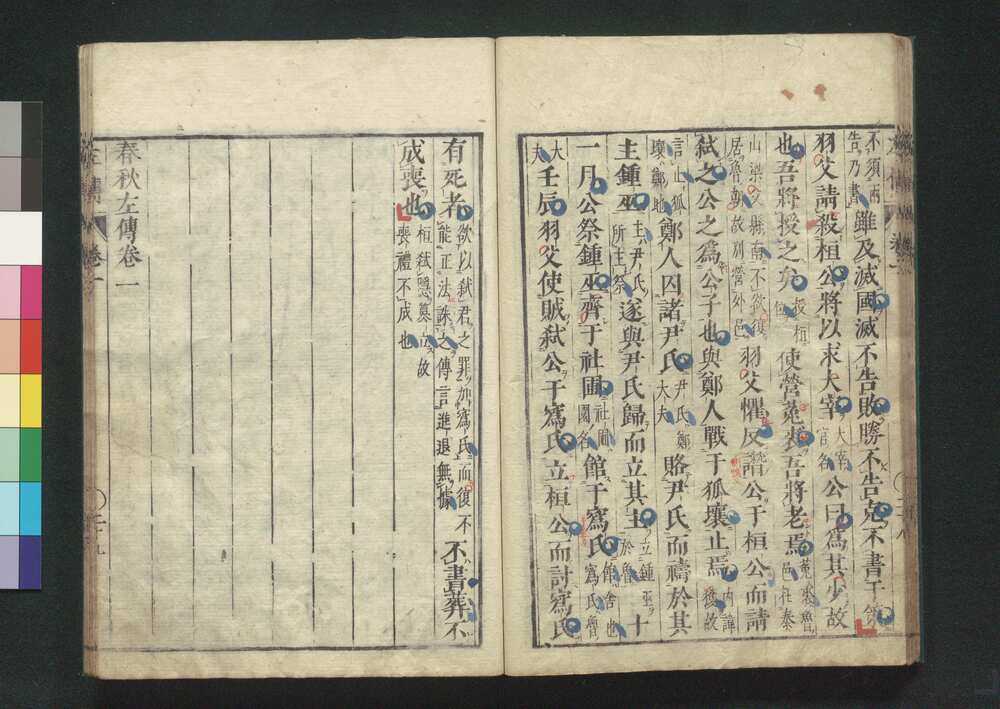 不須兩告乃書雖及滅國滅不告敗勝不告克不書于策
羽父請殺桓公將以求大宰大宰官名公曰爲其少故
也吾將授之矣授桓位使營菟裘吾將老焉菟裘魯邑在泰
山梁父縣南不欲復居魯朝故別營外邑羽父懼反譖公于桓公而請
弑之公之爲公子也與鄭人戰于狐壤止焉內諱獲故
言止狐壤鄭地鄭人囚諸尹氏尹氏鄭大夫賂尹氏而禱於其
主鍾巫主尹氏所主祭遂與尹氏歸而立其主立鍾巫於魯十
一月公祭鍾巫齊于社圃社圃園名館于寪氏館舍也寪氏魯
大夫壬辰羽父使賊弑公于寪氏立桓公而討寪氏
有死者欲以弑君之罪加寪氏而復不能正法誅之傳言進退無據不書葬不
成喪也桓弑隱篡立故喪禮不成也
春秋左傳卷一
左傳 卷一 二十九